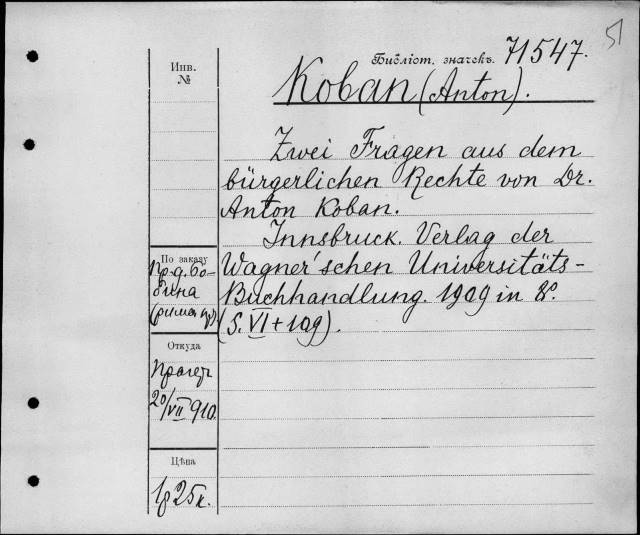 51
Библіот. значекъ. 71547.
Koban (Anton).
Инв.
№
Zwei Fragen aus dem
bürgerlichen Rechte von Dr.
Anton Koban.
Innsbruck. Verlag der
Wagner'schen Universitäts-
Buchhandlung. 1909 in 8º.
(S. VI + 109).
По заказу
Откуда
20/VII 910.
Цѣна
1р 25к.